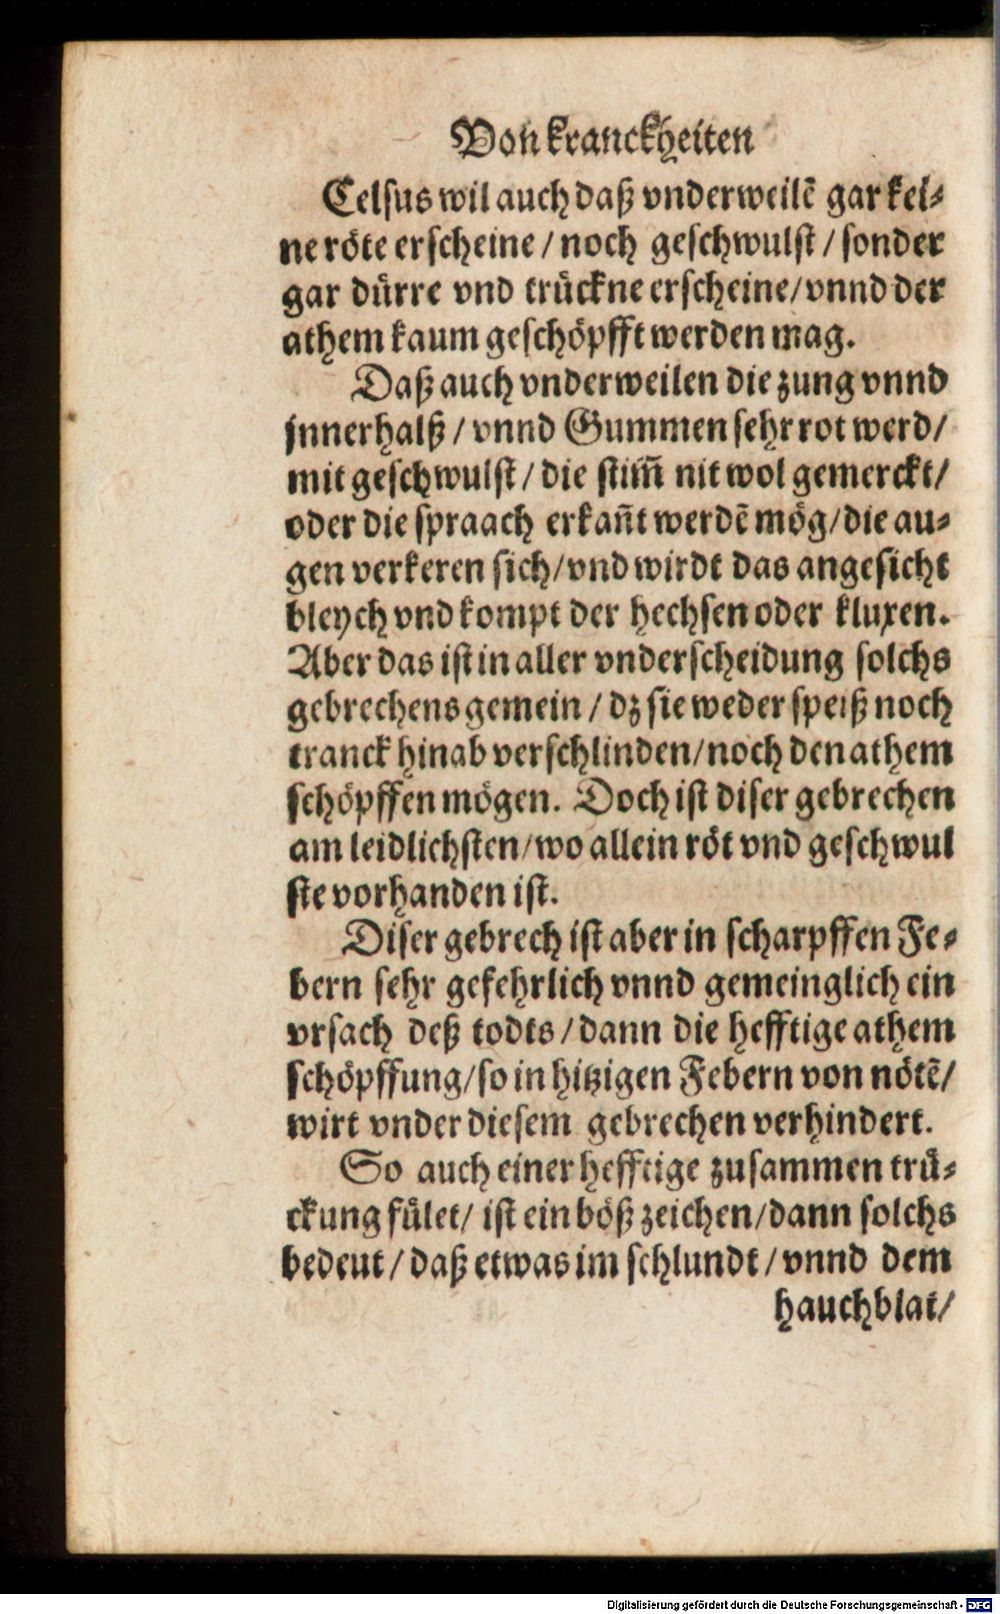 Von kranckheiten
Celsus wil auch daß vnderweilē gar kei⸗
ne röte erscheine / noch geschwulst / sonder
gar dürre vnd trückne erscheine/vnnd der
athem kaum geschöpfft werden mag.
Daß auch vnderweilen die zung vnnd
jnnerhalß / vnnd Gummen sehr rot werd/
mit geschwulst / die stim̄ nit wol gemerckt/
oder die spraach erkan̄t werdē mög/die au⸗
gen verkeren sich/vnd wirdt das angesicht
bleych vnd kompt der hechsen oder kluxen.
Aber das ist in aller vnderscheidung solchs
gebrechens gemein / dz sie weder speiß noch
tranck hinab verschlinden/noch den athem
schöpffen mögen. Doch ist diser gebrechen
am leidlichsten/wo allein röt vnd geschwul
ste vorhanden ist.
Diser gebrech ist aber in scharpffen Fe⸗
bern sehr gefehrlich vnnd gemeinglich ein
vrsach deß todts / dann die hefftige athem
schöpffung/so in hitzigen Febern von nötē/
wirt vnder diesem gebrechen verhindert.
So auch einer hefftige zusammen trü⸗
ckung fület/ ist ein böß zeichen/dann solchs
bedeut / daß etwas im schlundt / vnnd dem
hauchblat/
Digitalisierung gefördert durch die Deutsche Forschungsgemeinschaft - DFG